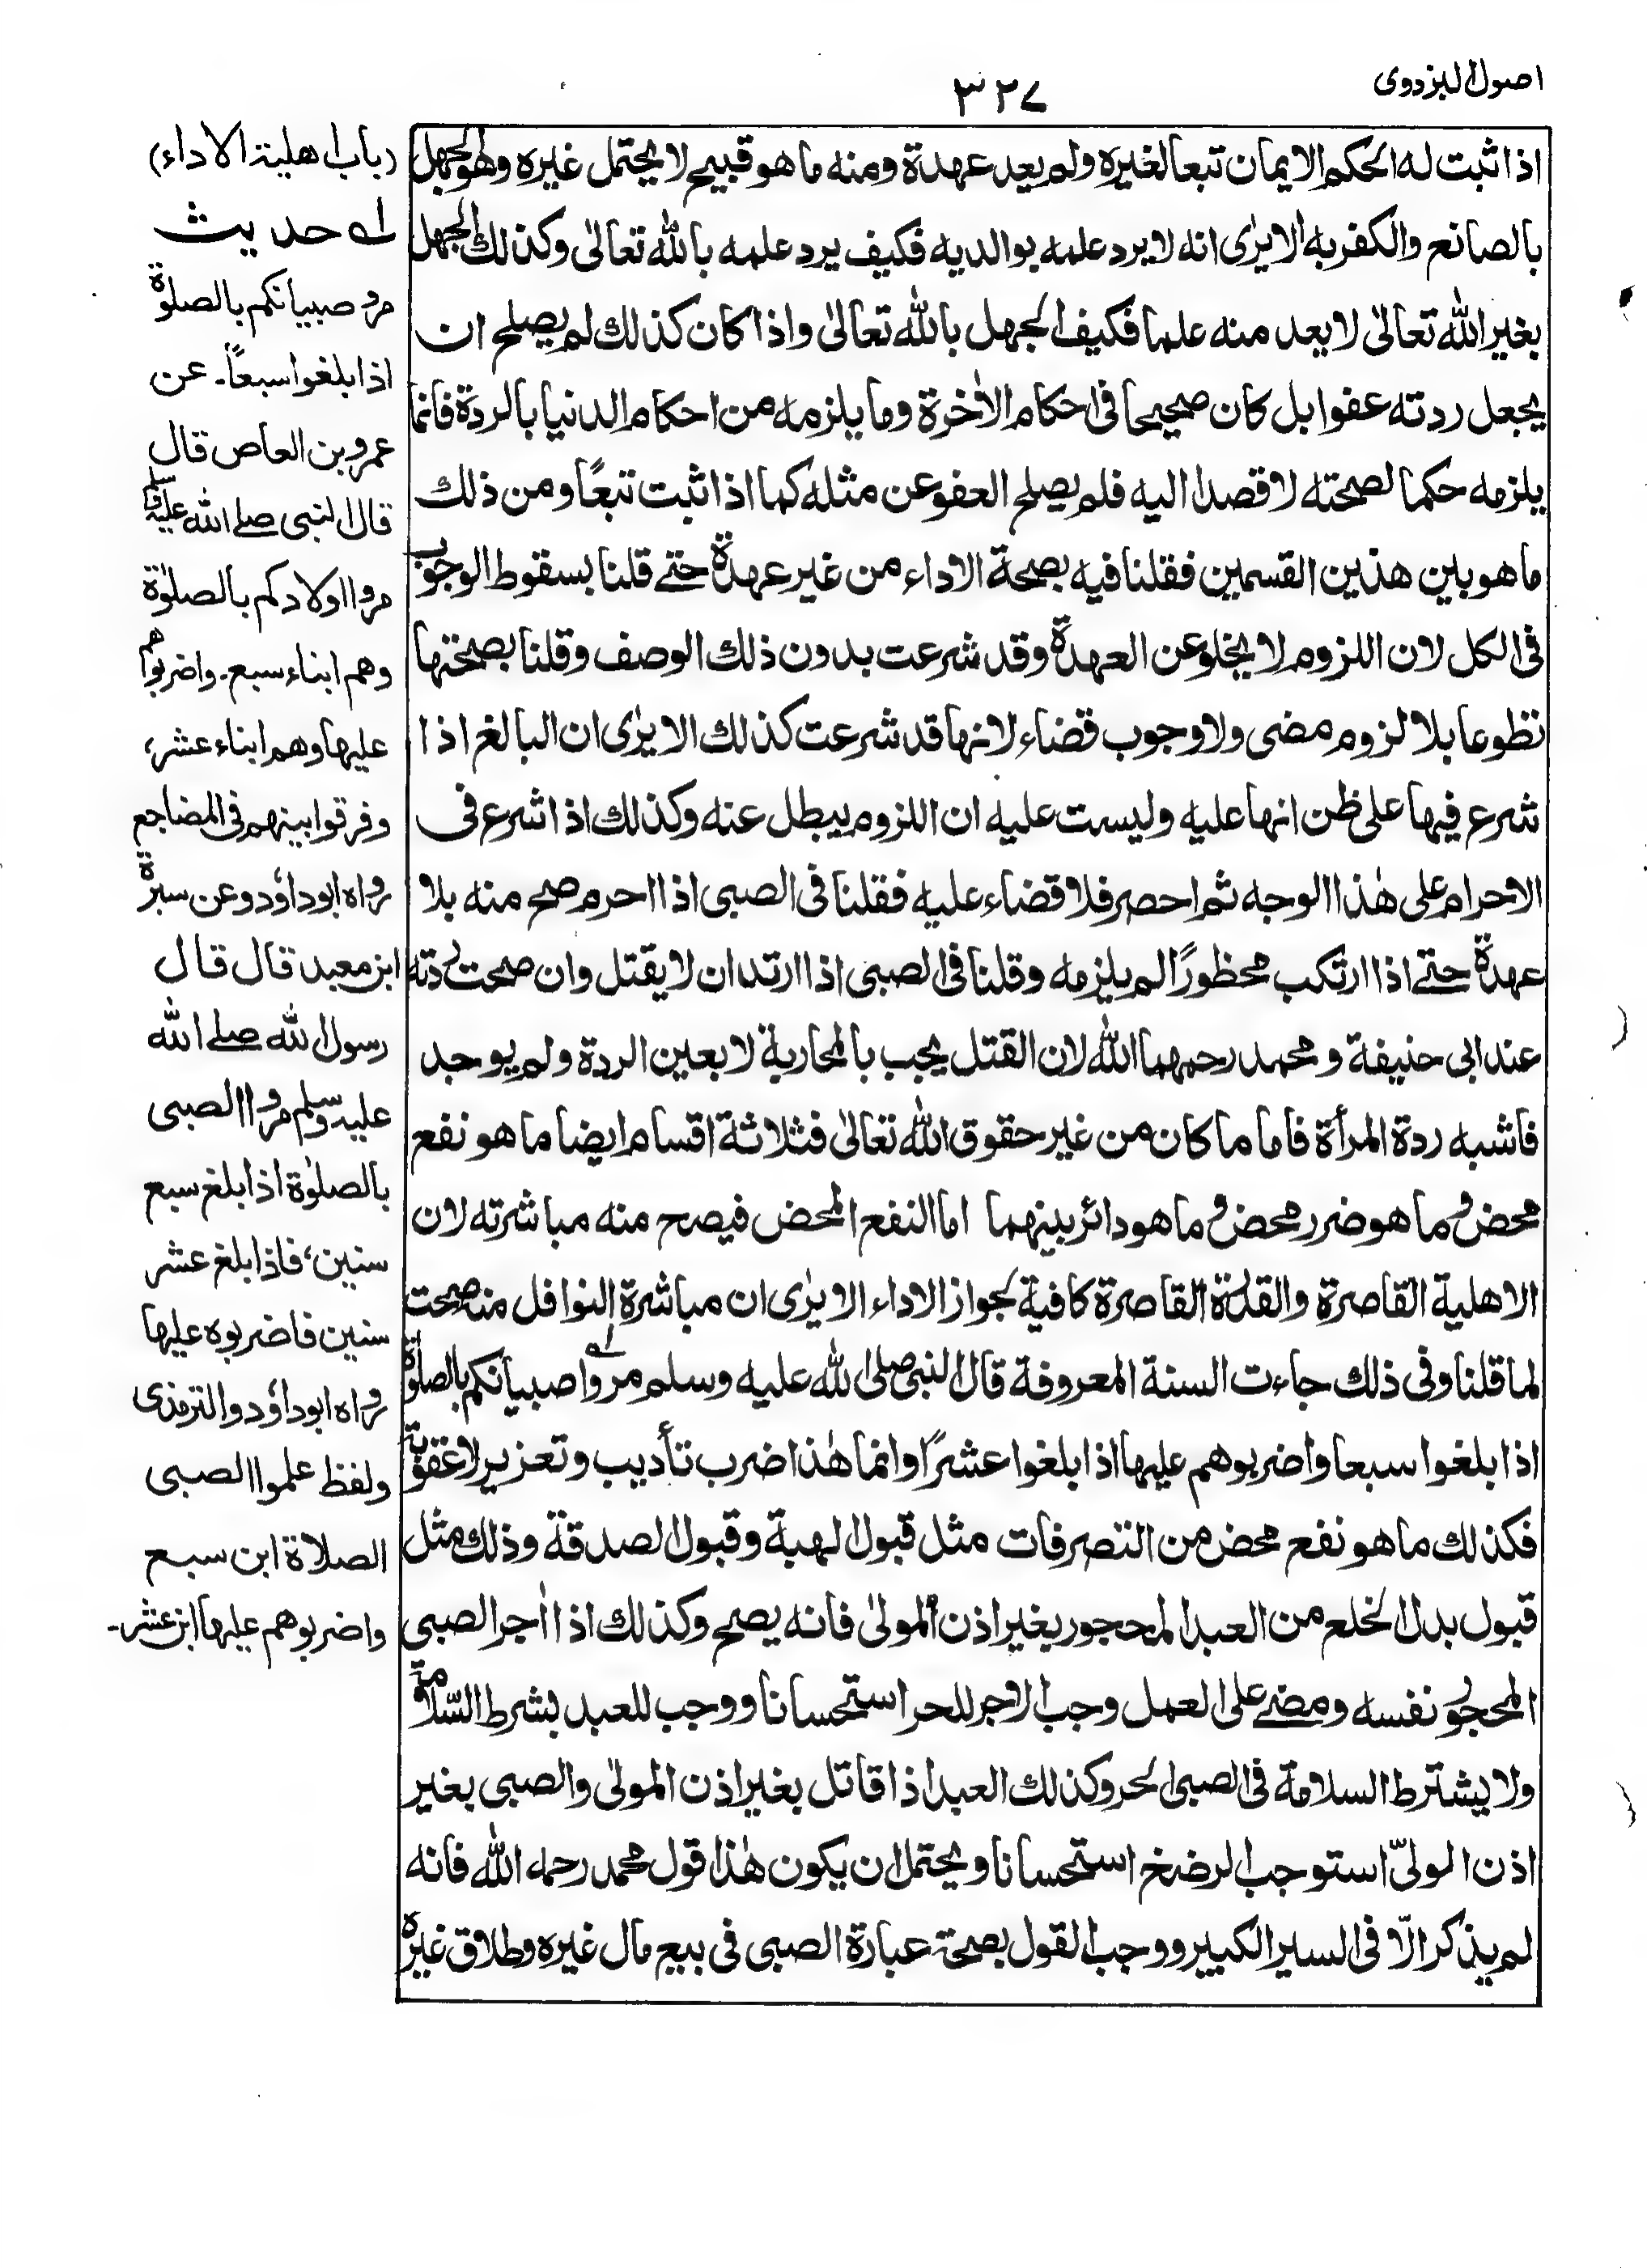 اصول البزدوی
۳۲۷
اذا ثبت له الحكم الايمان تبعا لغيره ولم يعد عهدة ومنه ما هو قبيح لا يحتمل غيره وهو الجهل
بالصانع والكفر به الا يرٰى انه لا يرد علمه بوالديه فكيف يرد علمه بالله تعالىٰ وكذلك الجهل
بغير الله تعالىٰ لا يعد منه علما فكيف الجهل بالله تعالىٰ واذا كان كذلك لم يصلح ان
يجعل ردته عفوا بل كان صحيحا فى احكام الاٰخرة وما يلزمه من احكام الدنيا بالردة فانما
يلزمه حكما لصحته لا قصدا اليه فلم يصلح العفو عن مثله كما اذا ثبت تبعًا ومن ذلك
ما هو بين هذين القسمين فقلنا فيه بصحة الاداء من غير عهدة حتے قلنا بسقوط الوجوب
فى الكل لان اللزوم لا يخلو عن العهدة وقد شرعت بدون ذلك الوصف وقلنا بصحتها
تطوعا بلا لزوم مضى ولا وجوب قضاء لانها قد شرعت كذلك الا يرٰى ان البالغ اذا
شرع فيها على ظن انها عليه وليست عليه ان اللزوم يبطل عنه وكذلك اذا شرع فى
الاحرام على هٰذا الوجه ثم احصر فلا قضاء عليه فقلنا فى الصبى اذا احرم صح منه بلا
عهدة حتے اذا ارتكب محظورًا لم يلزمه وقلنا فى الصبى اذا ارتد ان لا يقتل وان صحت ردته
عند ابى حنيفة و محمد رحمهما الله لان القتل يجب بالمحاربة لا بعين الردة ولم يوجد
فاشبه ردة المرأة فاما ما كان من غير حقوق الله تعالىٰ فثلاثة اقسام ايضا ما هو نفع
محض و ما هو ضرر محض و ما هو دائر بينهما اما النفع المحض فيصح منه مباشرته لان
الاهلية القاصرة والقدرة القاصرة كافية لجواز الاداء الا يرٰى ان مباشرة النوافل منه صحت
لما قلنا وفى ذلك جاءت السنة المعروفة قال النبى صلى الله عليه وسلم مروا صبيانكم بالصلوٰة
اذا بلغوا سبعا واضربوهم عليها اذا بلغوا عشرًا وانما هٰذا ضرب تأديب وتعزير لا عقوبة
فكذلك ما هو نفع محض من التصرفات مثل قبول لهبة وقبول الصدقة وذلك مثل
قبول بدل الخلع من العبد المحجور بغير اذن المولىٰ فانه يصح وكذلك اذا اٰجر الصبى
المحجور نفسه ومضے على العمل وجب الاجر للحر استحسانا ووجب للعبد بشرط السّلامة
ولا يشترط السلامة فى الصبى الحر وكذلك العبد اذا قاتل بغير اذن المولىٰ والصبى بغير
اذن الولىّ استوجب الرضخ استحسانا ويحتمل ان يكون هٰذا قول محمد رحمه الله فانه
لم يذكر الّا فى السير الكبير ووجب القول بصحة عبارة الصبى فى بيع مال غيره وطلاق غيره
(باب اهلية الاداء)
لـه حديث
مروا صبيانكم بالصلوٰة
اذا بلغوا سبعًا۔ عن
عمرو بن العاص قال
قال النبى صلے الله عليه وسلم
مروا اولادكم بالصلوٰة
وهم ابناء سبع۔ واضربوهم
عليها وهم ابناء عشر،
وفرقوا بينهم فى المضاجع
رواه ابوداؤد وعن سبرة
ابن معبد قال قال
رسول الله صلے الله
عليه وسلم مروا الصبى
بالصلوٰة اذا بلغ سبع
سنين، فاذا بلغ عشر
سنين فاضربوه عليها
رواه ابوداؤد والترمذى
ولفظ علموا الصبى
الصلاة ابن سبع
واضربوهم عليها ابن عشر۔